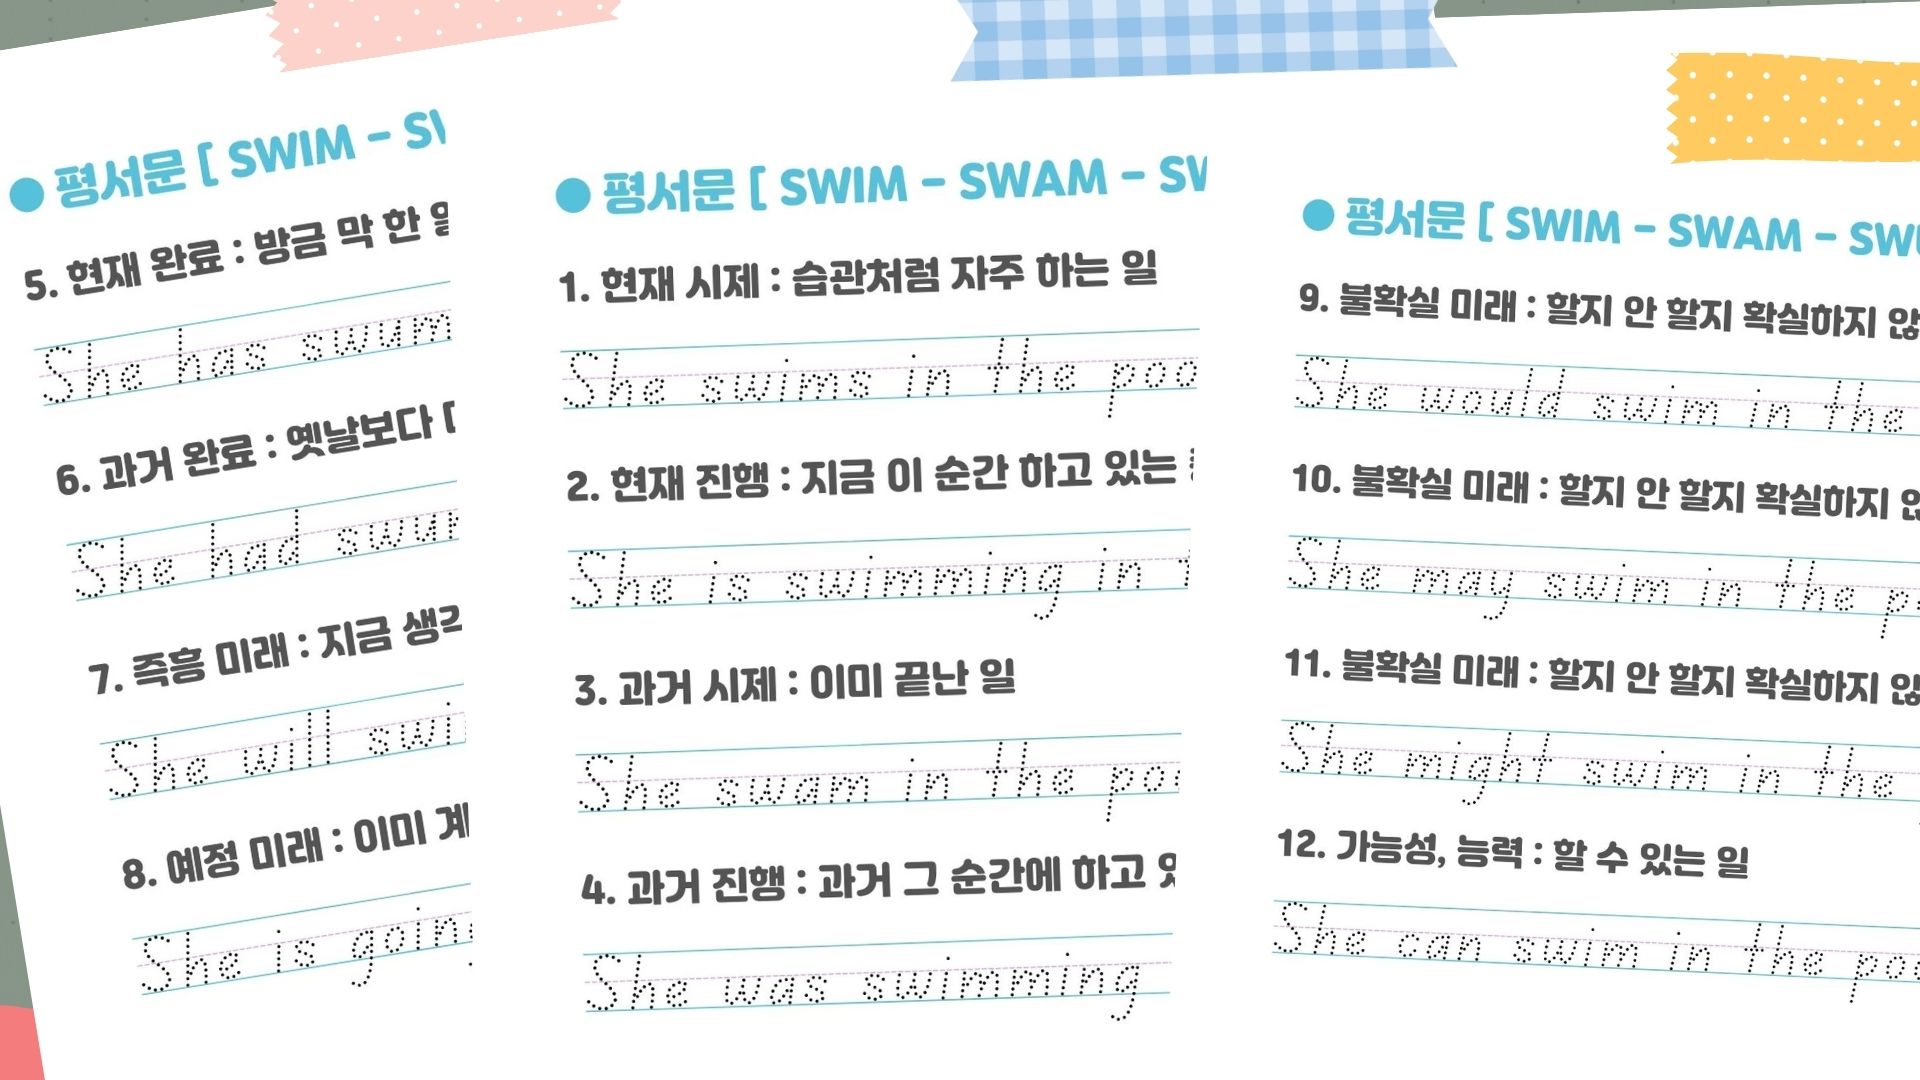 ● 평서문 [ SWIM -
5. 현재 완료 : 방금 막 한
She has swum
6. 과거 완료 : 옛날보다
She had
7. 즉흥 미래 : 지금
She will
8. 예정 미래 : 이미
She is
● 평서문 [ SWIM - SWAM -
1. 현재 시제 : 습관처럼 자주 하는 일
She swims in the
2. 현재 진행 : 지금 이 순간 하고 있는
She is swimming in
3. 과거 시제 : 이미 끝난 일
She swam in the
4. 과거 진행 : 과거 그 순간에 하고
She was swimming
● 평서문 [ SWIM - SWAM -
9. 불확실 미래 : 할지 안 할지 확실하지
She would swim in the
10. 불확실 미래 : 할지 안 할지 확실하지
She may swim in the
11. 불확실 미래 : 할지 안 할지 확실하지
She might swim in the
12. 가능성, 능력 : 할 수 있는 일
She can swim in the